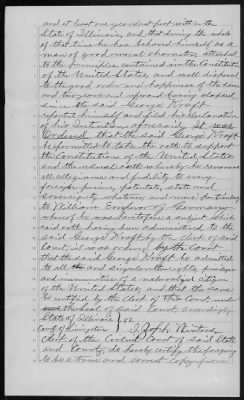 and at least one year last past within the
State of Illinois, and that during the whole
of that time he has behaved himself as a
man of good moral character attached
to the principles contained in the Constitution
of the United States, and well disposed
to the good order and happiness of the same
and two years and upward having elapsed
since the said George Kraft
reported himself and filed his declaration
of his Intention aforesaid It was
Ordered that the said George Kraft
be permitted to take the oath to support
the Constitution of the United States
and the usual oath whereby he renounces
all allegiance and fidelity to every
foreign prince, potentate, state and
Sovereignty whatever, and more particularly
to William Emperor of Germany
whereof he was heretofore a subject which
said oath having been administered to the
said George Kraft by the clerk of said
Court, it was ordered by the Court
that the said George Kraft be admitted
to all and singular the rights, privileges
and immunities of a naturalized citizen
of the United States, and that the same
be certified by the Clerk of this Court under
the Seal of said court accordingly
State of Illinois } ss.
County of Livingston } I,
Clerk of the Circuit Court of said State
and County, do hereby certify the foregoing
to be a true and correct copy from